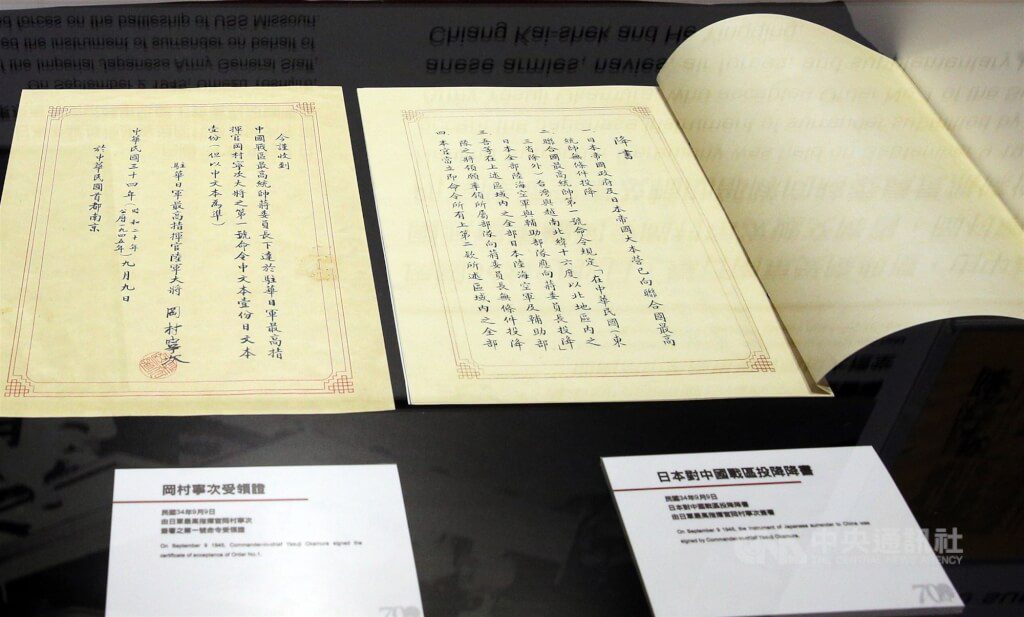 ed forces on the battleship of USS Missouri
ed the instrument of surrender on behalf of
the Imperial Japanese Army General Staff
On September 2 1945, Umezu Yoshijiro,
Chiang Kai-shek and He Yingqing
anese armies, navies, air forces, and
今謹收到
中國戰區最高統帥蔣委員長下達於駐華日軍最高指
揮官岡村寧次大將之第一號命令中文本壹份日文本
壹份(但以中文本為準)
駐華日軍最高指揮官陸軍大將 岡村寧次
中華民國三十四年(昭和二十年 公曆一九四五年)九月九日
於中華民國首都南京
降書
一、日本帝國政府及日本帝國大本營已向聯合國最高
統帥無條件投降
二、聯合國最高統帥第一號命令規定「在中華民國(東
三省除外)台灣與越南北緯十六度以北地區內之
日本全部陸海空軍與輔助部隊應向蔣委員長投降」
三、吾等在上述區域內之全部日本陸海空軍及輔助部
隊之將領願率領所屬部隊向蔣委員長無條件投降
四、本官當立即命令所有上第二款所述區域內之全部
岡村寧次受領證
民國34年9月9日
由日軍最高指揮官岡村寧次
簽署之第一號命令受領證
On September 9 1945, Commander-in-chief Yasuji Okamura signed the
certificate of acceptance of Order No.1.
70
日本對中國戰區投降降書
民國34年9月9日
日本對中國戰區投降降書
由日軍最高指揮官岡村寧次簽署
On September 9 1945, the instrument of Japanese surrender to China was
signed by Commander-in-chief Yasuji Okamura.
70
中央通訊社
THE CENTRAL NEWS AGENCY